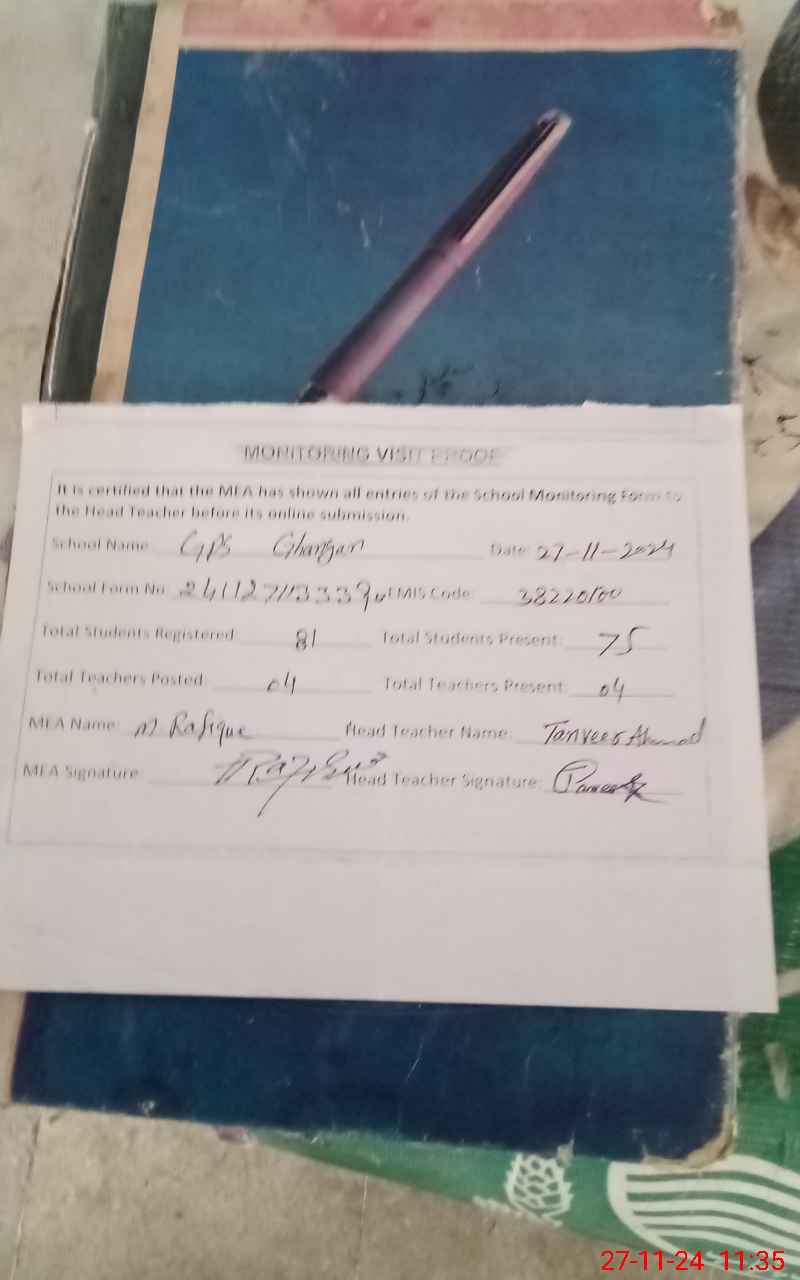 MONITORING VISIT PROOF
It is certified that the MEA has shown all entries of the School Monitoring Form to
the Head Teacher before its online submission.
School Name: GPS Ghangan Date: 27-11-2024
School Form No. EMIS Code: 38220100
Total Students Registered 81 Total Students Present: 75
Total Teachers Posted: 04 Total Teachers Present: 04
MEA Name: M Rafique Head Teacher Name: Tanveer Ahmad
MEA Signature Head Teacher Signature:
27-11-24 11:35